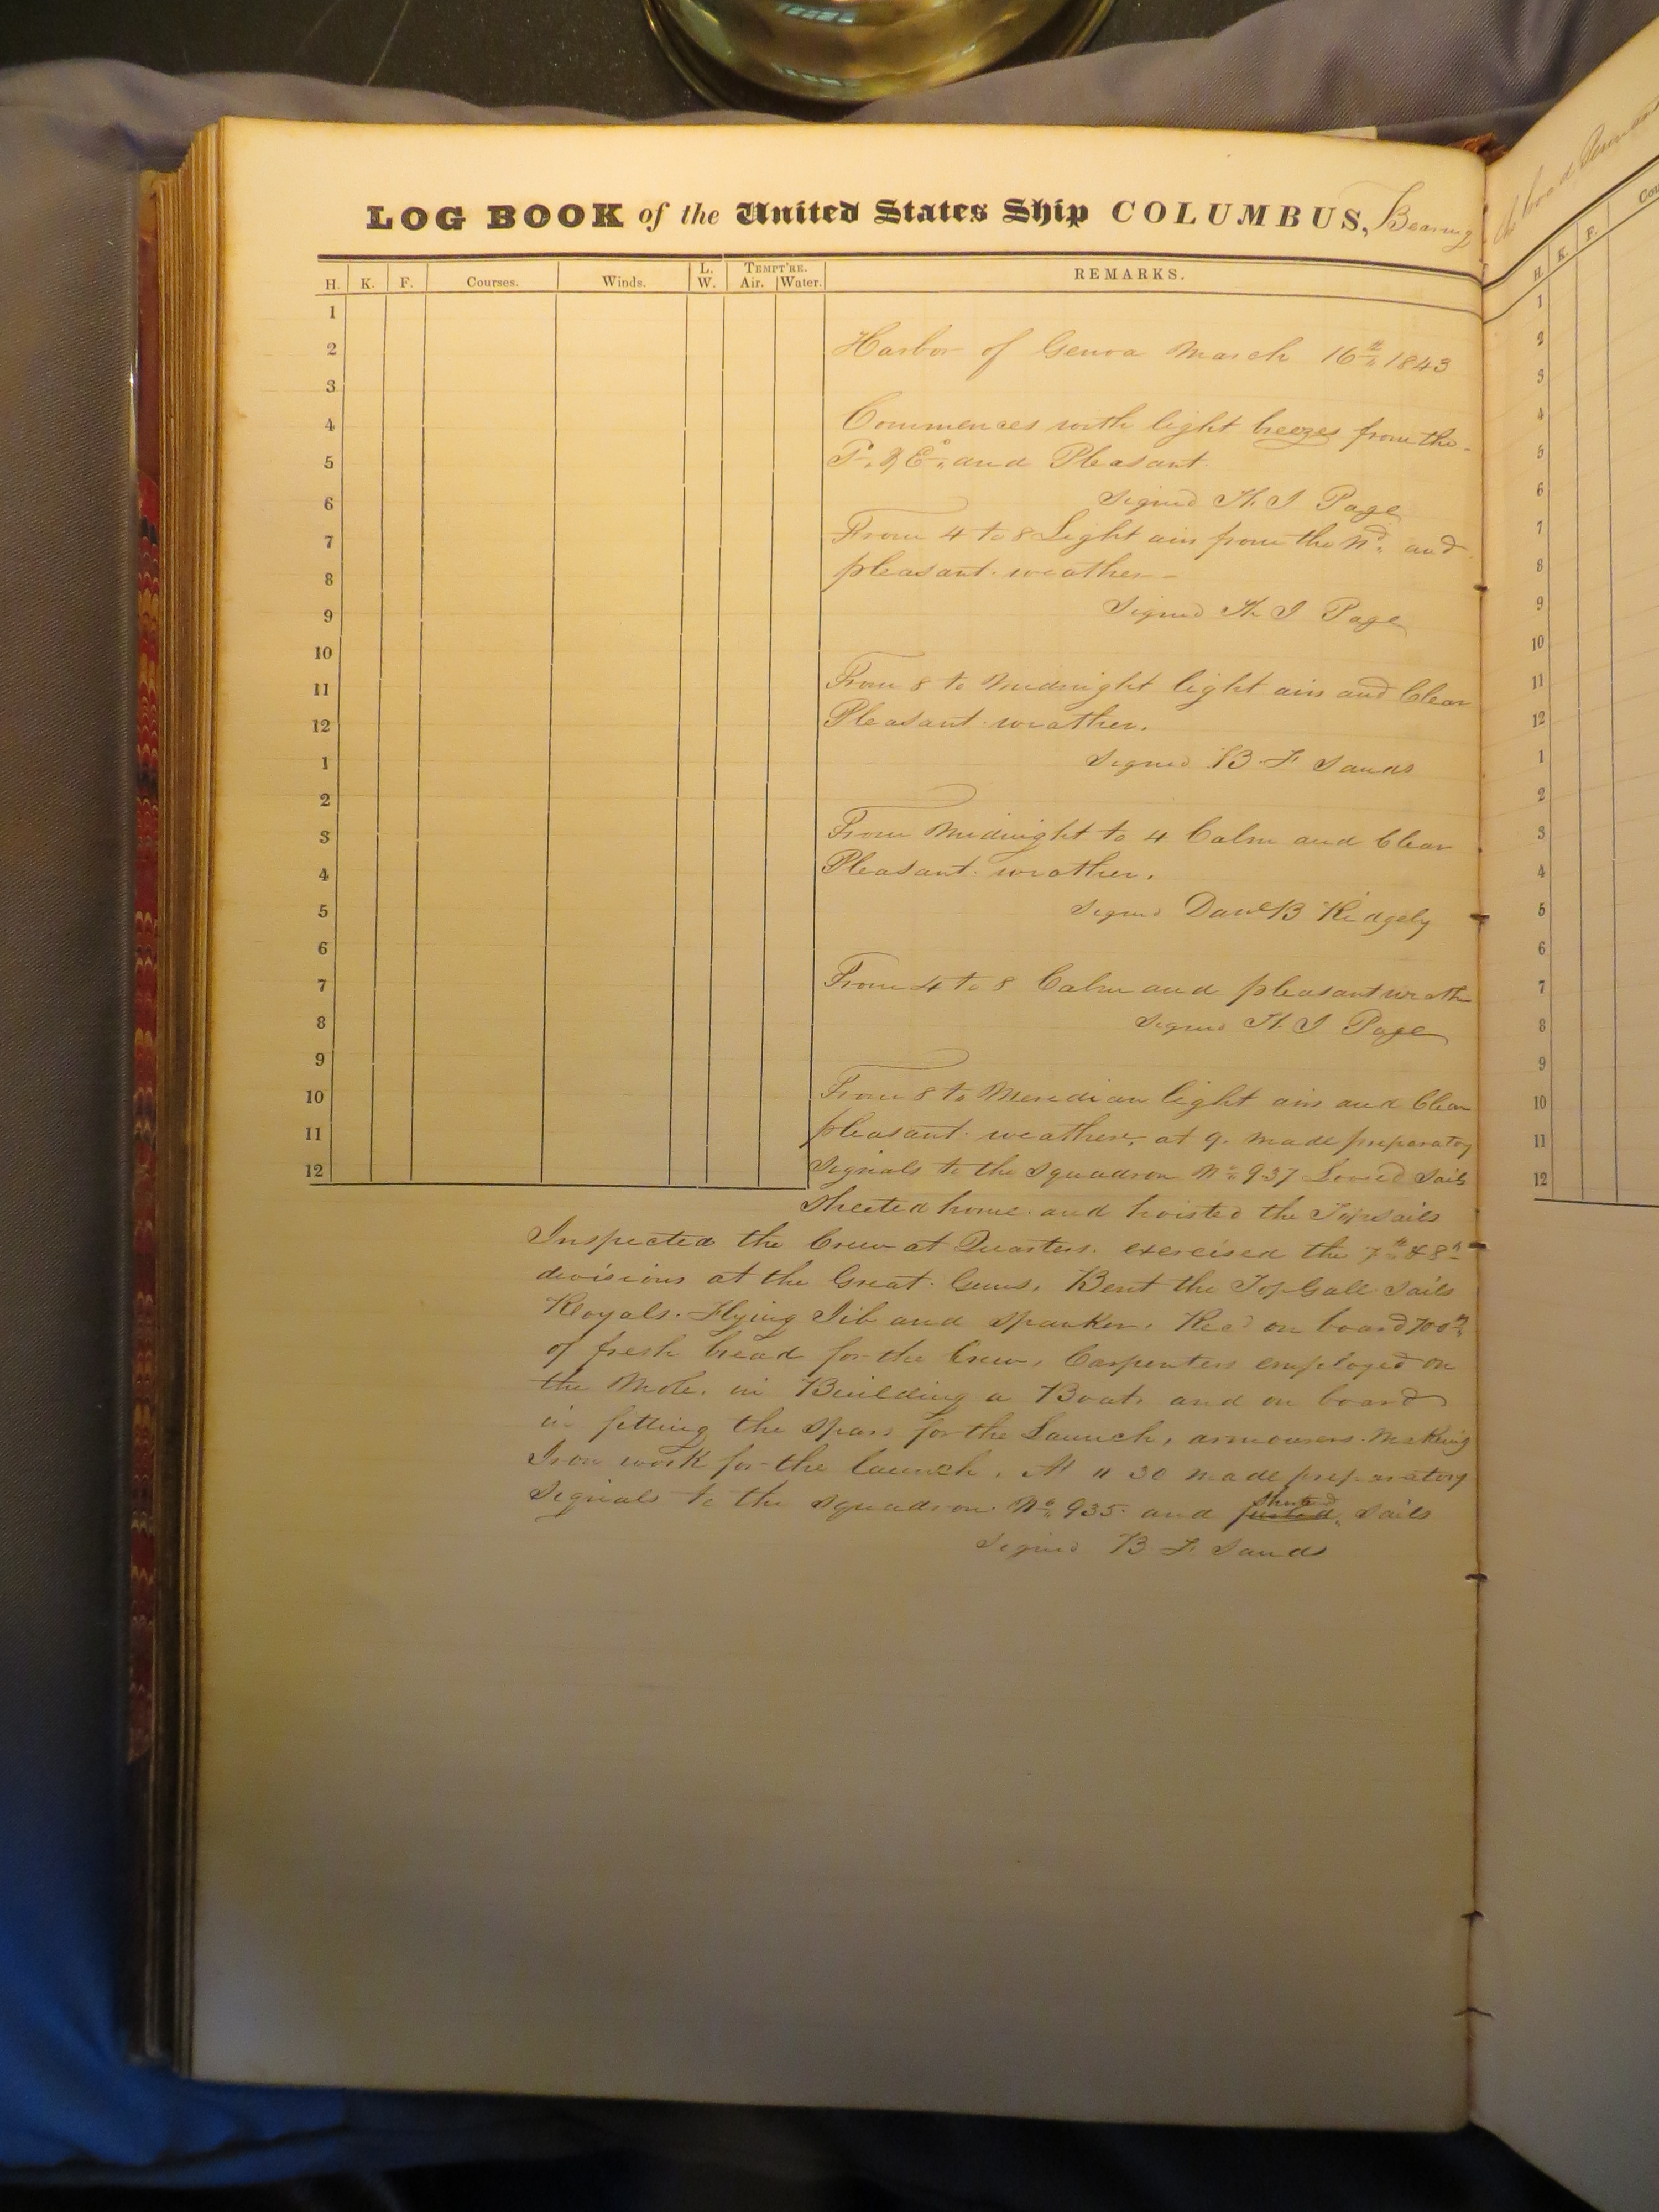 LOG BOOK of the United States Ship COLUMBUS, Bearing
H. K. F. Courses. Winds. L. W. TEMPT'RE. Air. Water. REMARKS.
1
2
3
4
5
6
7
8
9
10
11
12
1
2
3
4
5
6
7
8
9
10
11
12
Harbor of Genoa March 16th 1843
Commences with light breezes from the
and Pleasant.
Signed Th. J Page
From 4 to 8 Light airs from the Nd. and
pleasant weather
Signed Th J Page
From 8 to Midnight light airs and Clear
Pleasant weather.
Signed B F Sands
From Midnight to 4 Calm and Clear
Pleasant weather.
Signed Danl B Ridgely
From 4 to 8 Calm and pleasant weather
Signed Th. J Page
From 8 to Meridian light airs and Clear
pleasant weather, at 9. made preparatory
Signals to the Squadron No 937 Loosed Sails
Sheeted home and hoisted the Topsails
Inspected the Crew at Quarters. exercised the 7th & 8th
divisions at the Great Guns. Bent the Top Gall Sails
Royals. Flying Jib and Spanker. Recd on board 700
of fresh bread for the Crew. Carpenters employed on
the Mole. in Building a Boat, and on board
in fitting the Spars for the Launch, armourers making
Iron work for the launch. At 11 30 made preparatory
Signals to the Squadron No 935 and furled Sails
Signed B F Sands
H. K. F.
1
2
3
4
5
6
7
8
9
10
11
12
1
2
3
4
5
6
7
8
9
10
11
12